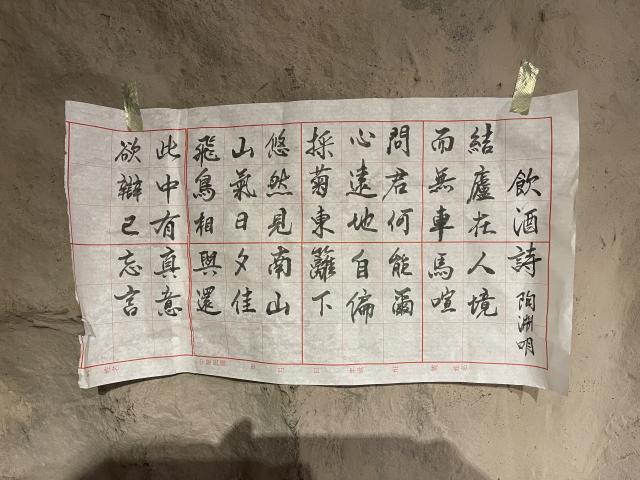 飲酒詩 陶淵明
結廬在人境
而無車馬喧
問君何能爾
心遠地自偏
採菊東籬下
悠然見南山
山氣日夕佳
飛鳥相與還
此中有真意
欲辯已忘言